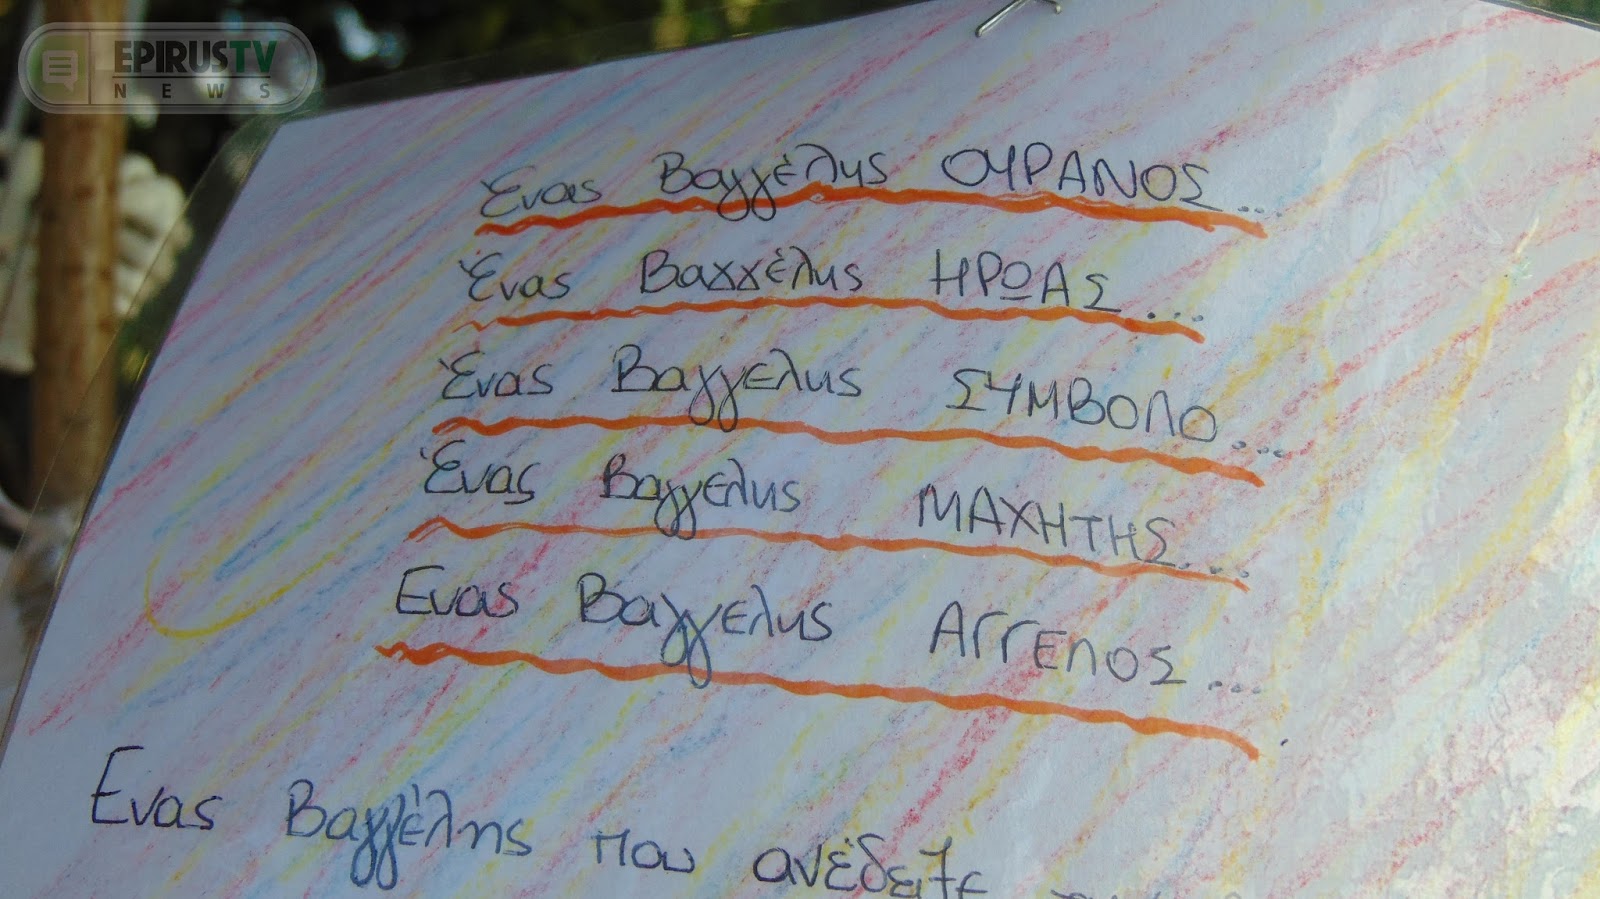 EPIRUSTV
NEWS
Ένας Βαγγέλης ΟΥΡΑΝΟΣ...
Ένας Βαγγέλης ΗΡΩΑΣ...
Ένας Βαγγελης ΣΥΜΒΟΛΟ...
Ένας Βαγγελης ΜΑΧΗΤΗΣ...
Ενας Βαγγελης ΑΓΓΕΛΟΣ...
Ενας Βαγγέλης που ανέδειξε